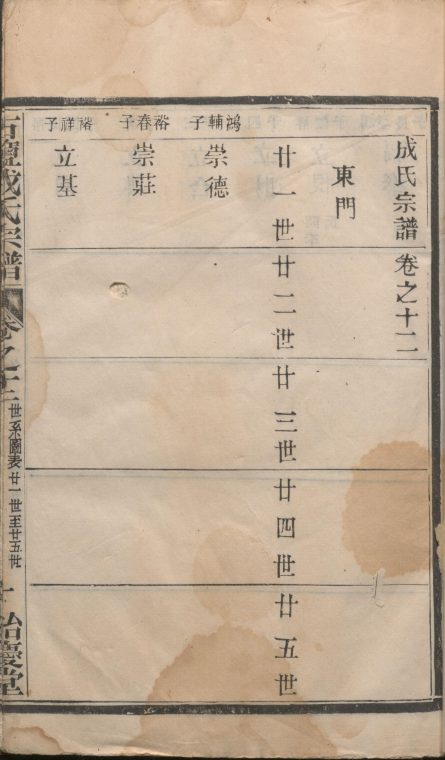 成氏宗譜 卷之十二
東門
廿一世
廿二世
廿三世
廿四世
廿五世
鴻輔子
崇德
裕春子
崇莊
裕祥子
立基
石鹽成氏宗譜
卷之十二
世系圖表 廿一世至廿五世
詒慶堂